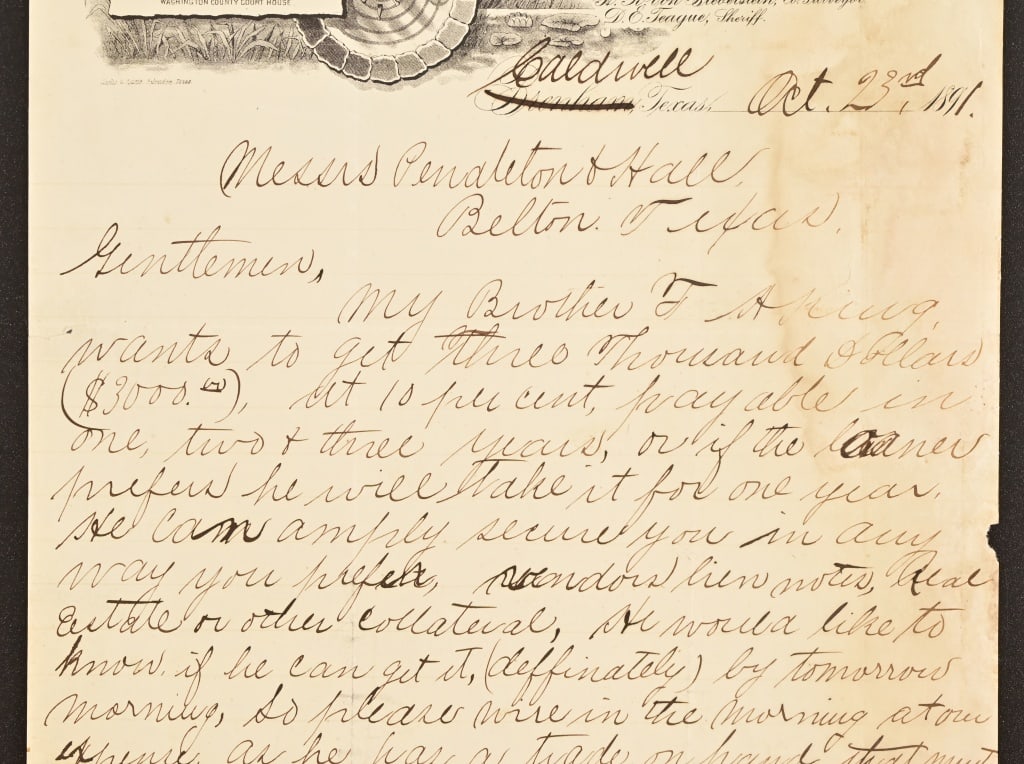 WASHINGTON COUNTY COURT HOUSE.
D. C. Teague, Sheriff.
Caldwell
Brenham, Texas, Oct. 23rd, 1891.
Messrs Pendleton & Hall,
Belton. Texas,
Gentlemen,
My Brother T A King,
wants to get three Thousand Dollars
($3000.00), at 10 per cent, payable in
one, two & three years, or if the loaner
prefers he will take it for one year.
He can amply secure you in any
way you prefer, vendors lien notes, Real
Estate or other collateral, He would like to
know if he can get it, (deffinately) by tomorrow
morning, So please wire in the morning at our
expense, as he has a trade on hand that must